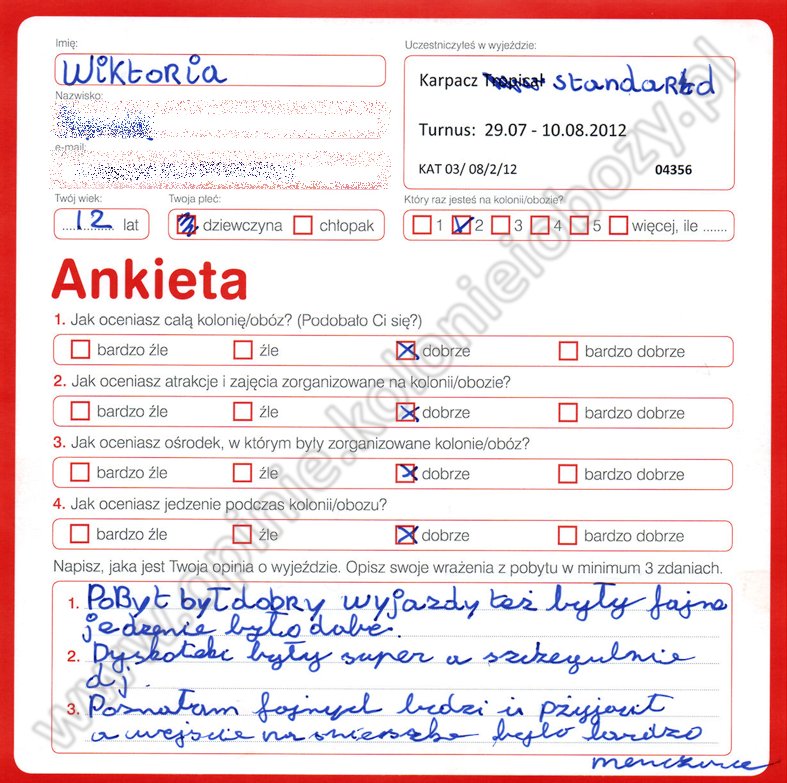 Imię:
Wiktoria
Uczestniczyłeś w wyjeździe:
Karpacz Tropical standartd
Nazwisko:
e-mail:
Turnus: 29.07 - 10.08.2012
KAT 03/ 08/2/12 04356
Twój wiek:
12 lat
Twoja płeć:
dziewczyna chłopak
Który raz jesteś na kolonii/obozie?
1 2 3 4 5 więcej, ile .......
Ankieta
1. Jak oceniasz całą kolonię/obóz? (Podobało Ci się?)
bardzo źle źle dobrze bardzo dobrze
2. Jak oceniasz atrakcje i zajęcia zorganizowane na kolonii/obozie?
bardzo źle źle dobrze bardzo dobrze
3. Jak oceniasz ośrodek, w którym były zorganizowane kolonie/obóz?
bardzo źle źle dobrze bardzo dobrze
4. Jak oceniasz jedzenie podczas kolonii/obozu?
bardzo źle źle dobrze bardzo dobrze
Napisz, jaka jest Twoja opinia o wyjeździe. Opisz swoje wrażenia z pobytu w minimum 3 zdaniach.
1. PoByt był dobry wyjazdy też były fajne
jedzenie było dobe.
2. Dyskoteki były super a szczegulnie
dj.
3. Poznałam fajnych ludzi i
a wejście na było bardzo
www.opinie.kolonieiobozy.pl